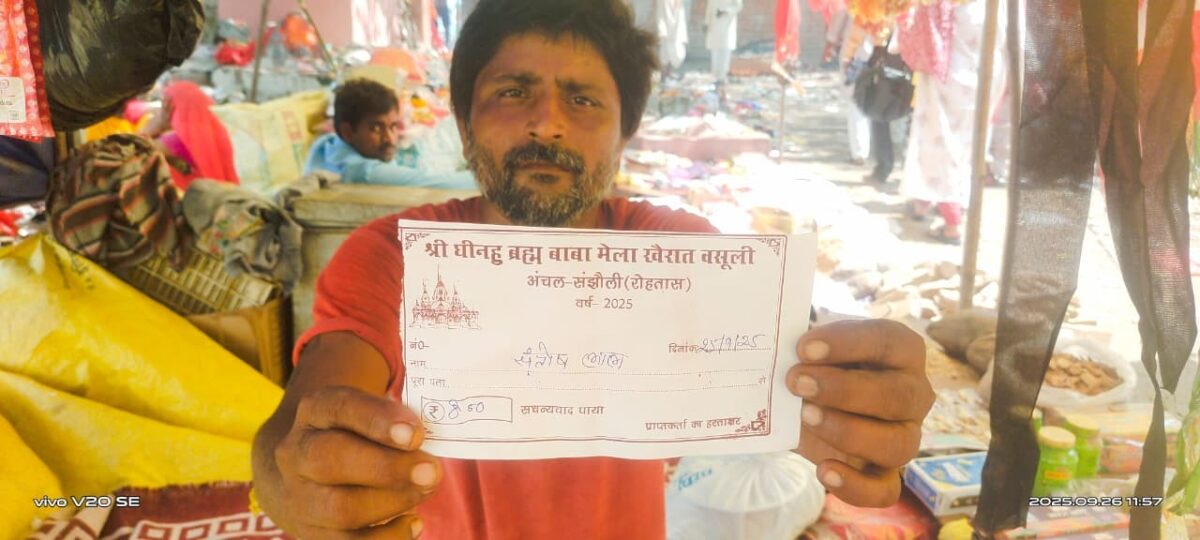 श्री घीनहु ब्रह्म बाबा मेला खैरात वसूली
अंचल-संझौली (रोहतास)
वर्ष- 2025
नं०-
दिनांक 25/9/25
नाम संतोष
पूरा पता से
₹ 850 सधन्यवाद पाया
प्राप्तकर्ता का हस्ताक्षर
vivo V20 SE
2025.09.26 11:57